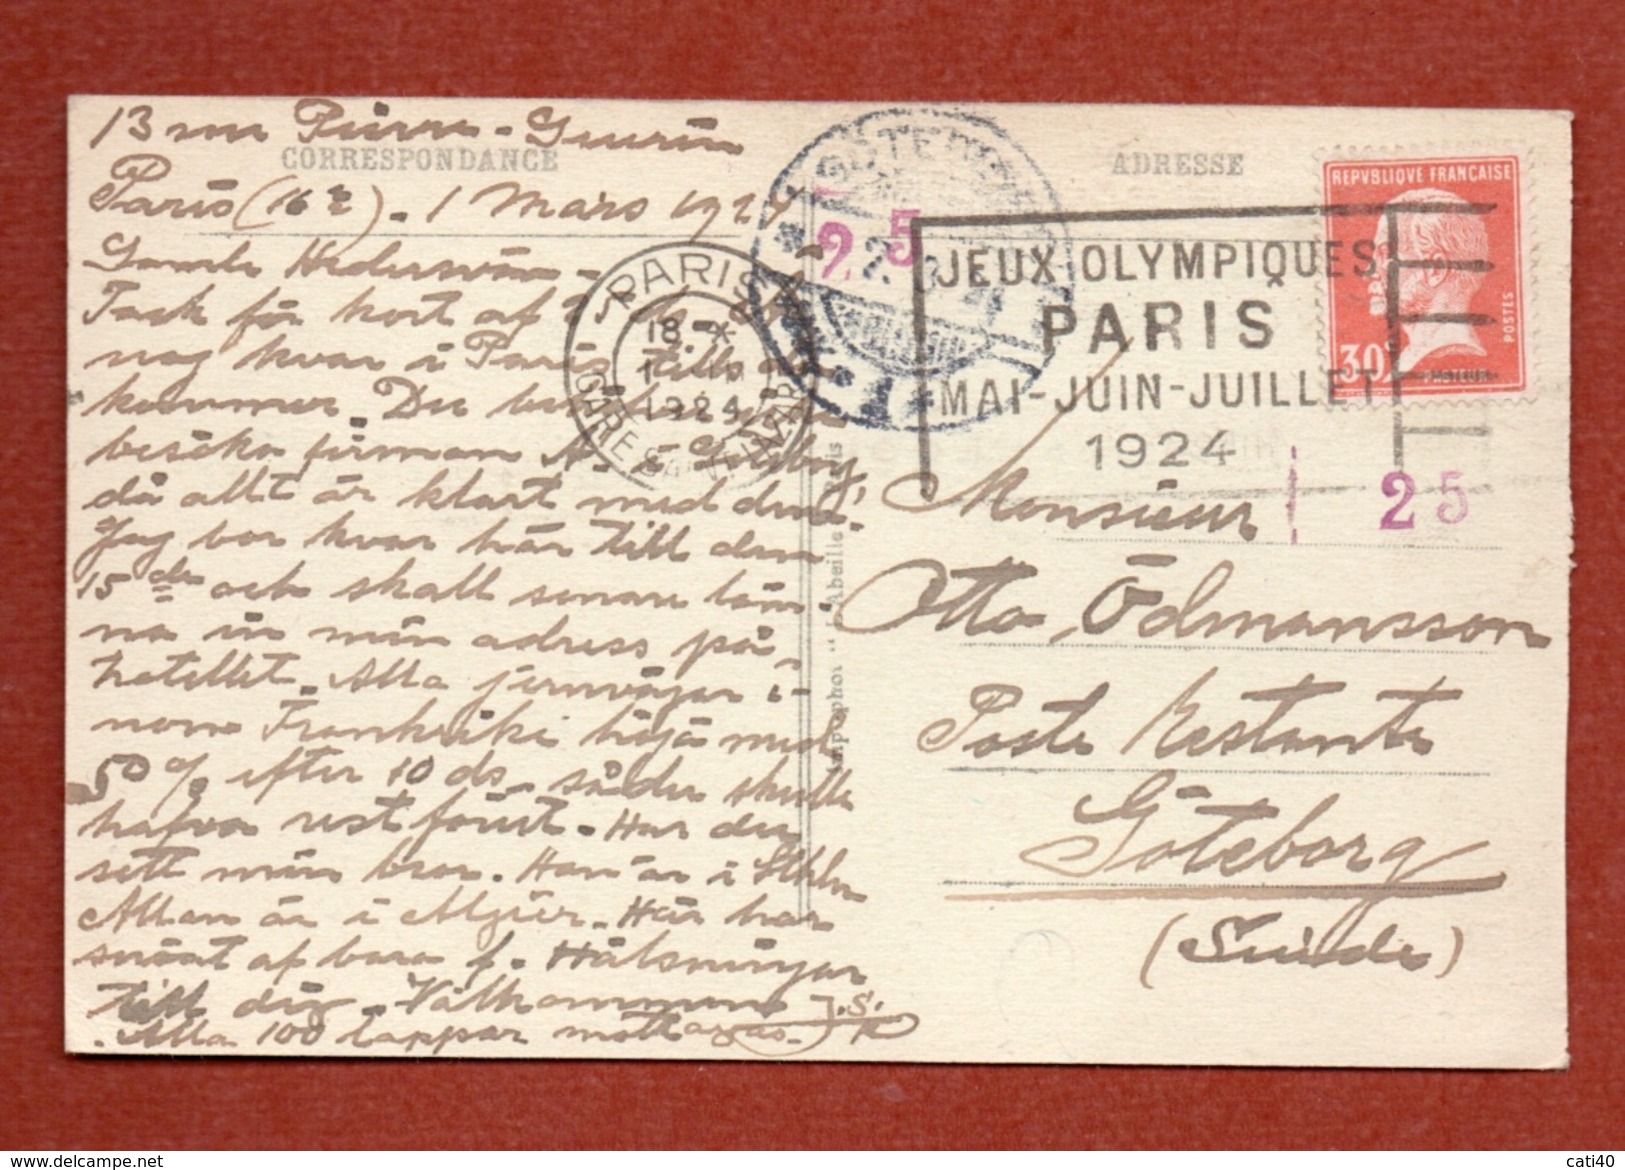 13 rue Pierre-Guerin
CORRESPONDANCE
Paris (16e). 1 Mars 1924
Gamle Hedersvän -
Tack för kort af
nog kvar i Paris tills du
kommer. Du
besöka firman
då allt är klart med dem.
Jag bor kvar här till den
15de och skall senare läm-
na in min adress på
hotellet. Alla jernvägar i-
nom Frankrike höja med
50% efter 10 ds. så du skulle
hafva rest förut. Har du
sett min bror. Han är i Sthlm
Allan är i Algier. Här har
snöat af bara f. Hälsningar
till dig. Välkommen J.S.
Alla 100 lappar mottagas.
PARIS
18
1924
GARE ST LAZARE
GÖTEBORG
25
1
ADRESSE
JEUX OLYMPIQUES
PARIS
MAI-JUIN-JUILLET
1924
REPVBLIQVE FRANÇAISE
POSTES
30c
PASTEUR
25
Monsieur
Otto Ödmansson
Poste Restante
Göteborg
(Suède)
Imp-photo "Abeille" Paris
delcampe.net
cati40